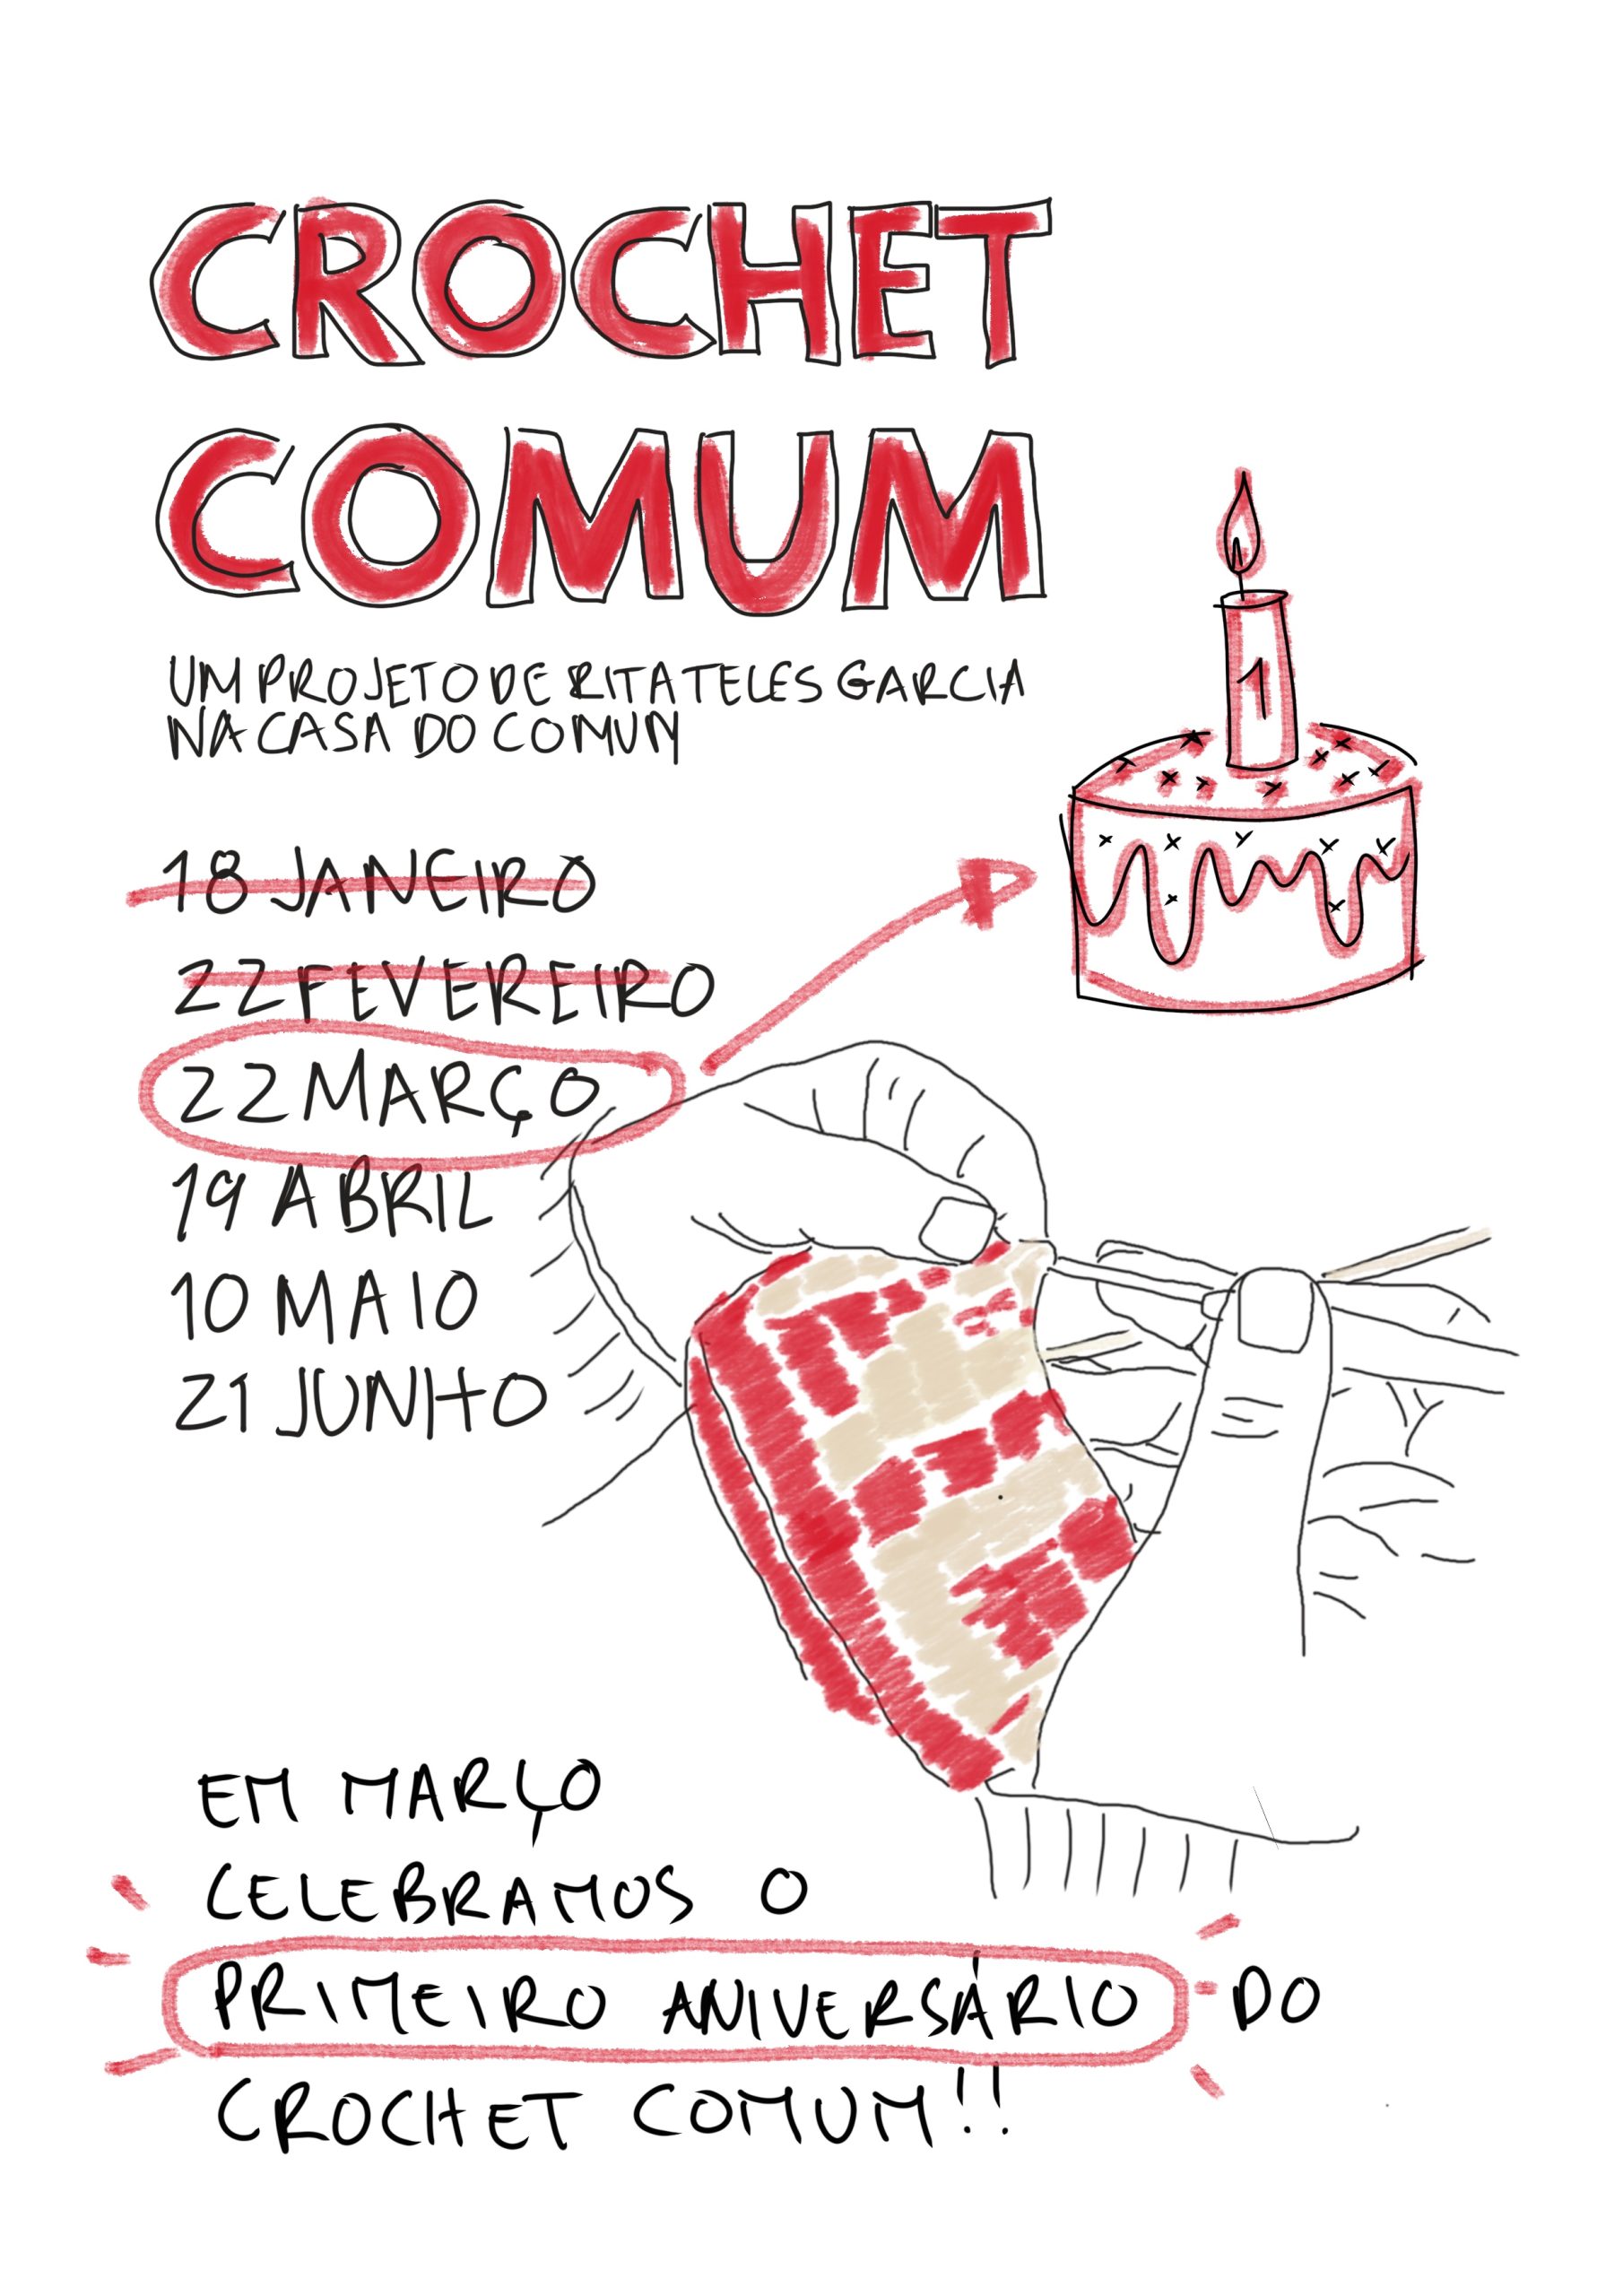 CROCHET
COMUM
UM PROJETO DE RITA TELES GARCIA
NA CASA DO COMUM
1
18 JANEIRO
22 FEVEREIRO
22 MARÇO
19 ABRIL
10 MAIO
21 JUNHO
EM MARÇO
CELEBRAMOS O
PRIMEIRO ANIVERSÁRIO DO
CROCHET COMUM!!